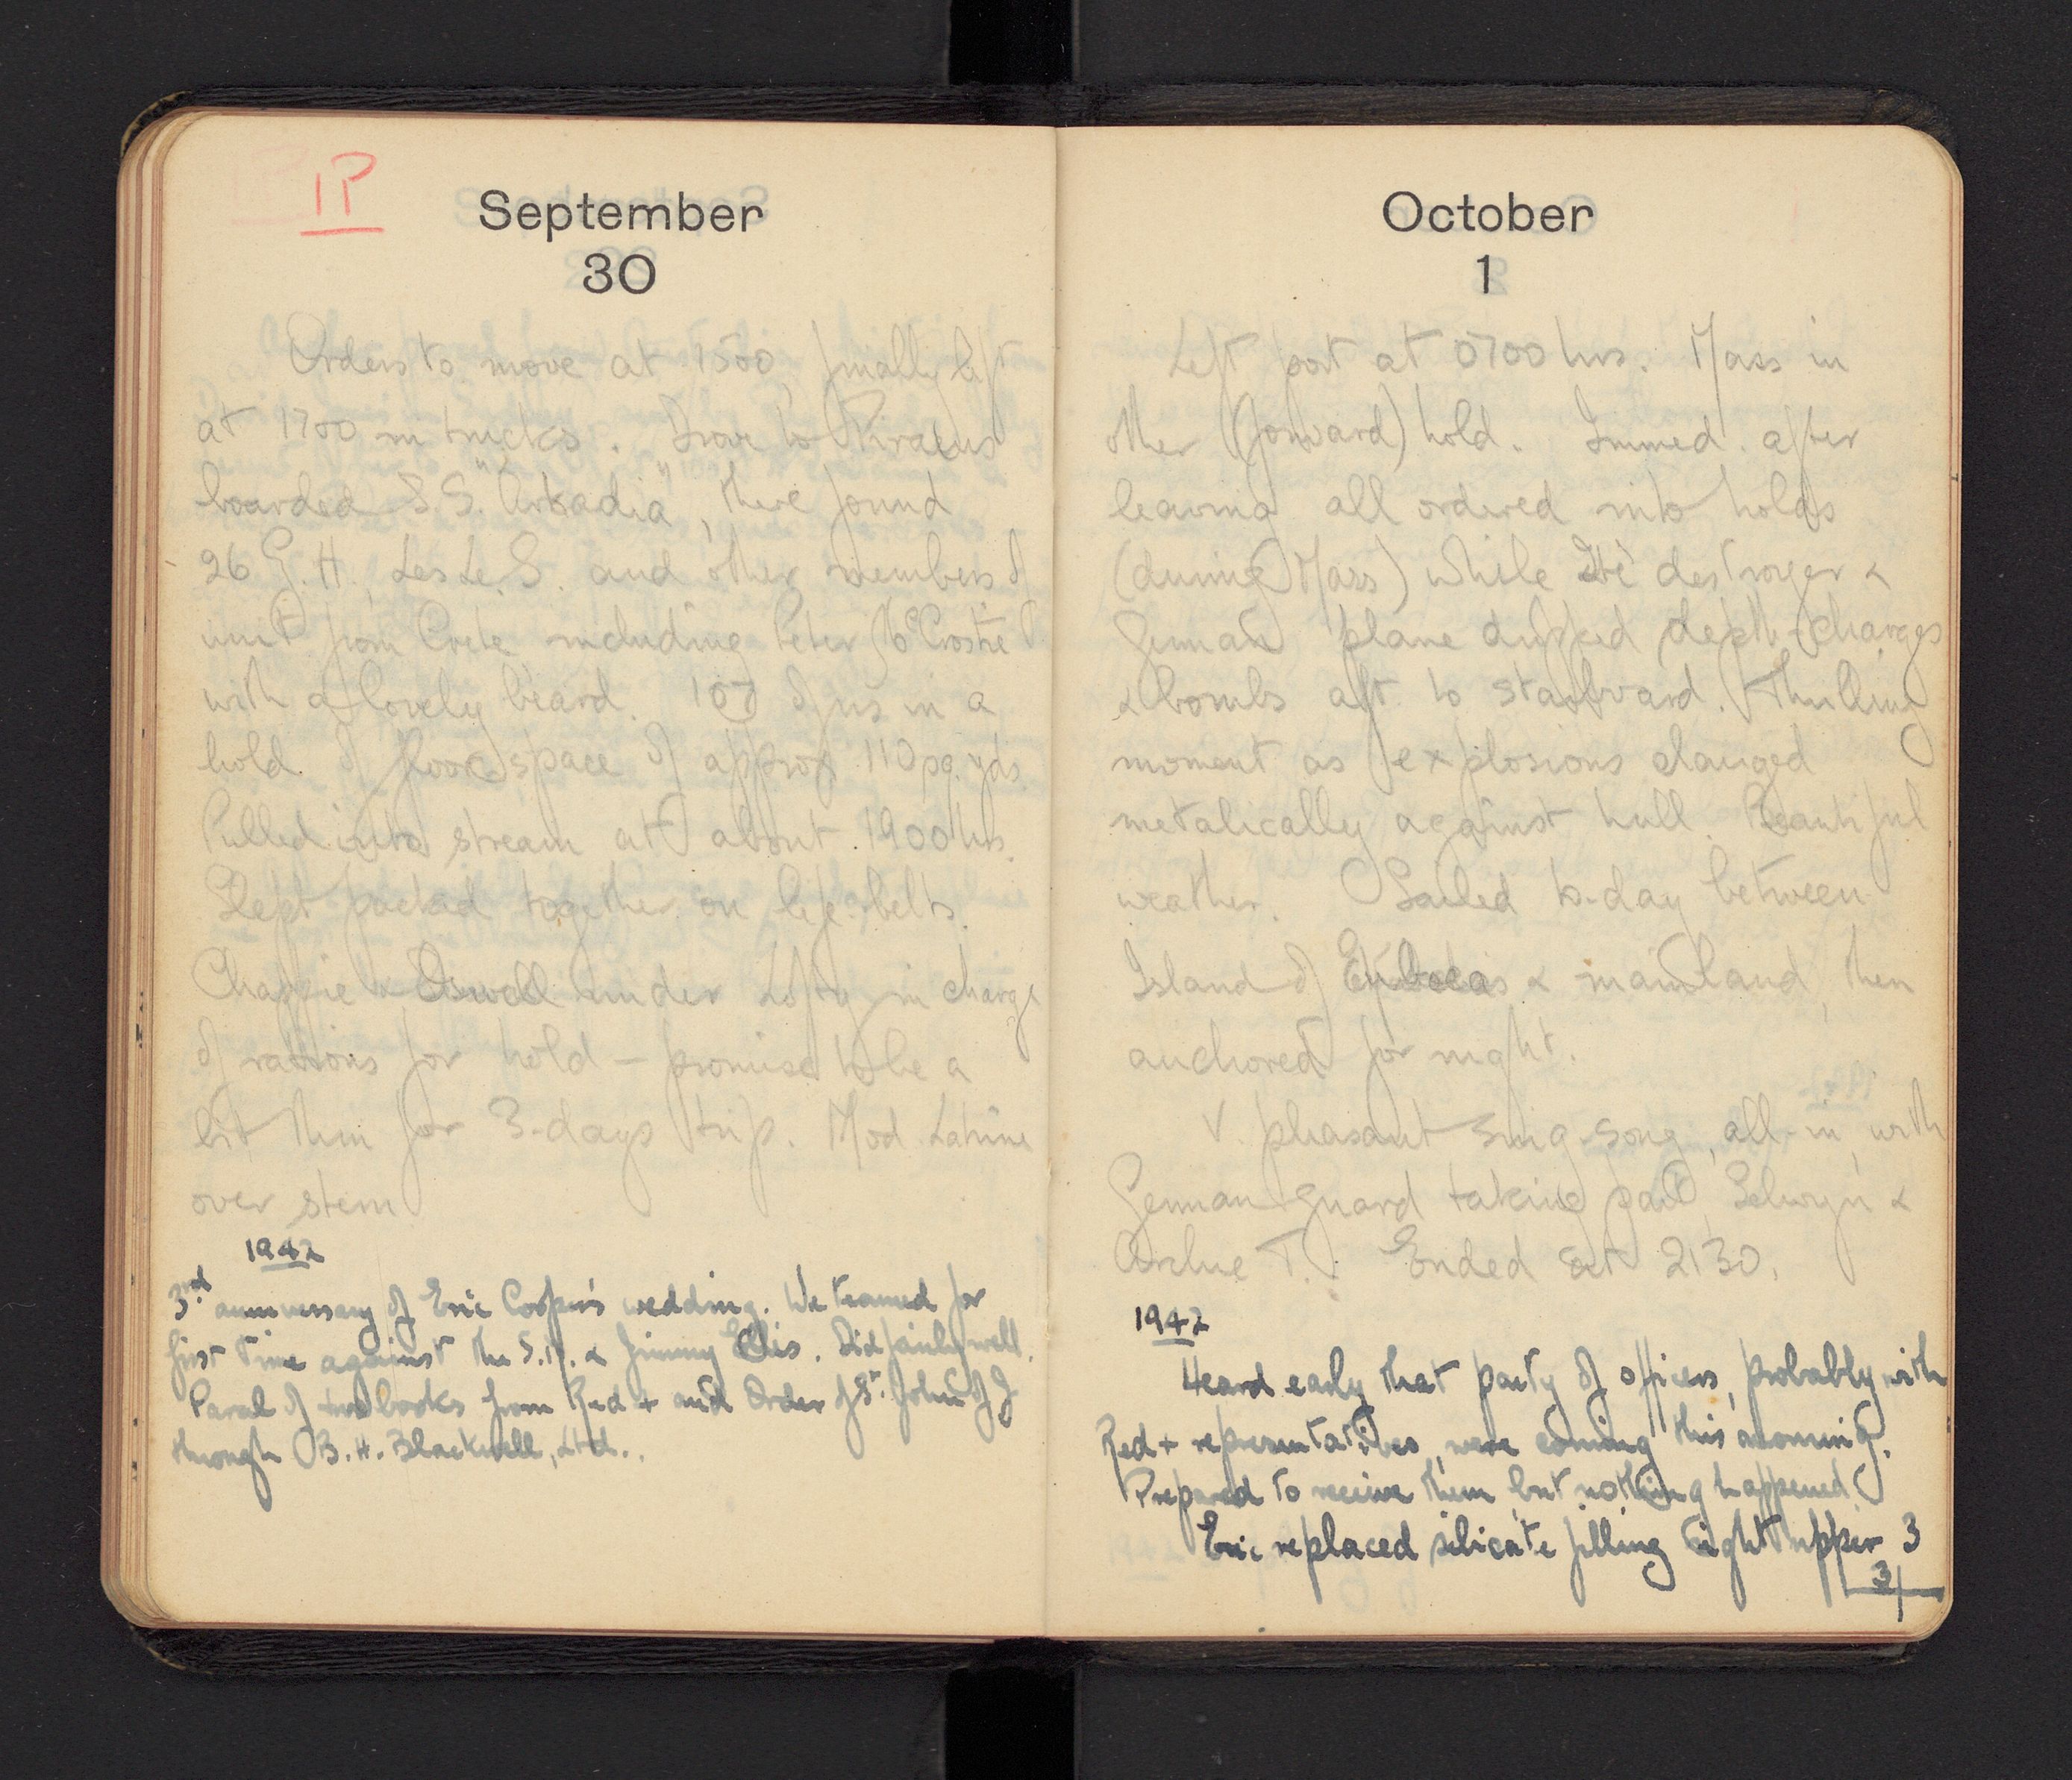 1P
September
30
Orders to move at 1500, finally left
at 1700 in trucks. Drove to Piraeus
boarded S.S. "Arkadia", there found
26 G.H. Les Le. S. and other members of
unit from Crete including Peter
with a lovely beard. 107 of us in a
hold of floor space of approx 110 sq. yds.
Pulled into stream at about 1900 hrs.
Slept packed together on life-belts.
Chappie & Oswell under Lofty in charge
of rations for hold — promise to be a
bit thin for 3-days trip. Mod. Latrine
over stern
1942
3rd anniversary of Eric Cooper's wedding. We teamed for
first time against the & Jimmy Ellis. Did fairly well.
Parcel of two books from Red + and Order of St. John of J
through B.H. Blackwell, Ltd..
October
1
Left port at 0700 hrs. Mass in
other (forward) hold. Immed. after
leaving all ordered into holds
(during Mass) while Ite destroyer &
German plane dropped depth-charges
& bombs aft to starboard. Thrilling
moment as explosions clanged
metalically against hull. Beautiful
weather. Sailed to-day between
Island of & mainland, then
anchored for night.
V. pleasant sing-song, all-in, with
German guard taking part, Selwyn &
Archie T. Ended at 2130.
1942
Heard early that party of officers, probably with
Red + representatives, were coming this morning.
Prepared to receive them but nothing happened.
Eric replaced silicate filling right upper 3
3